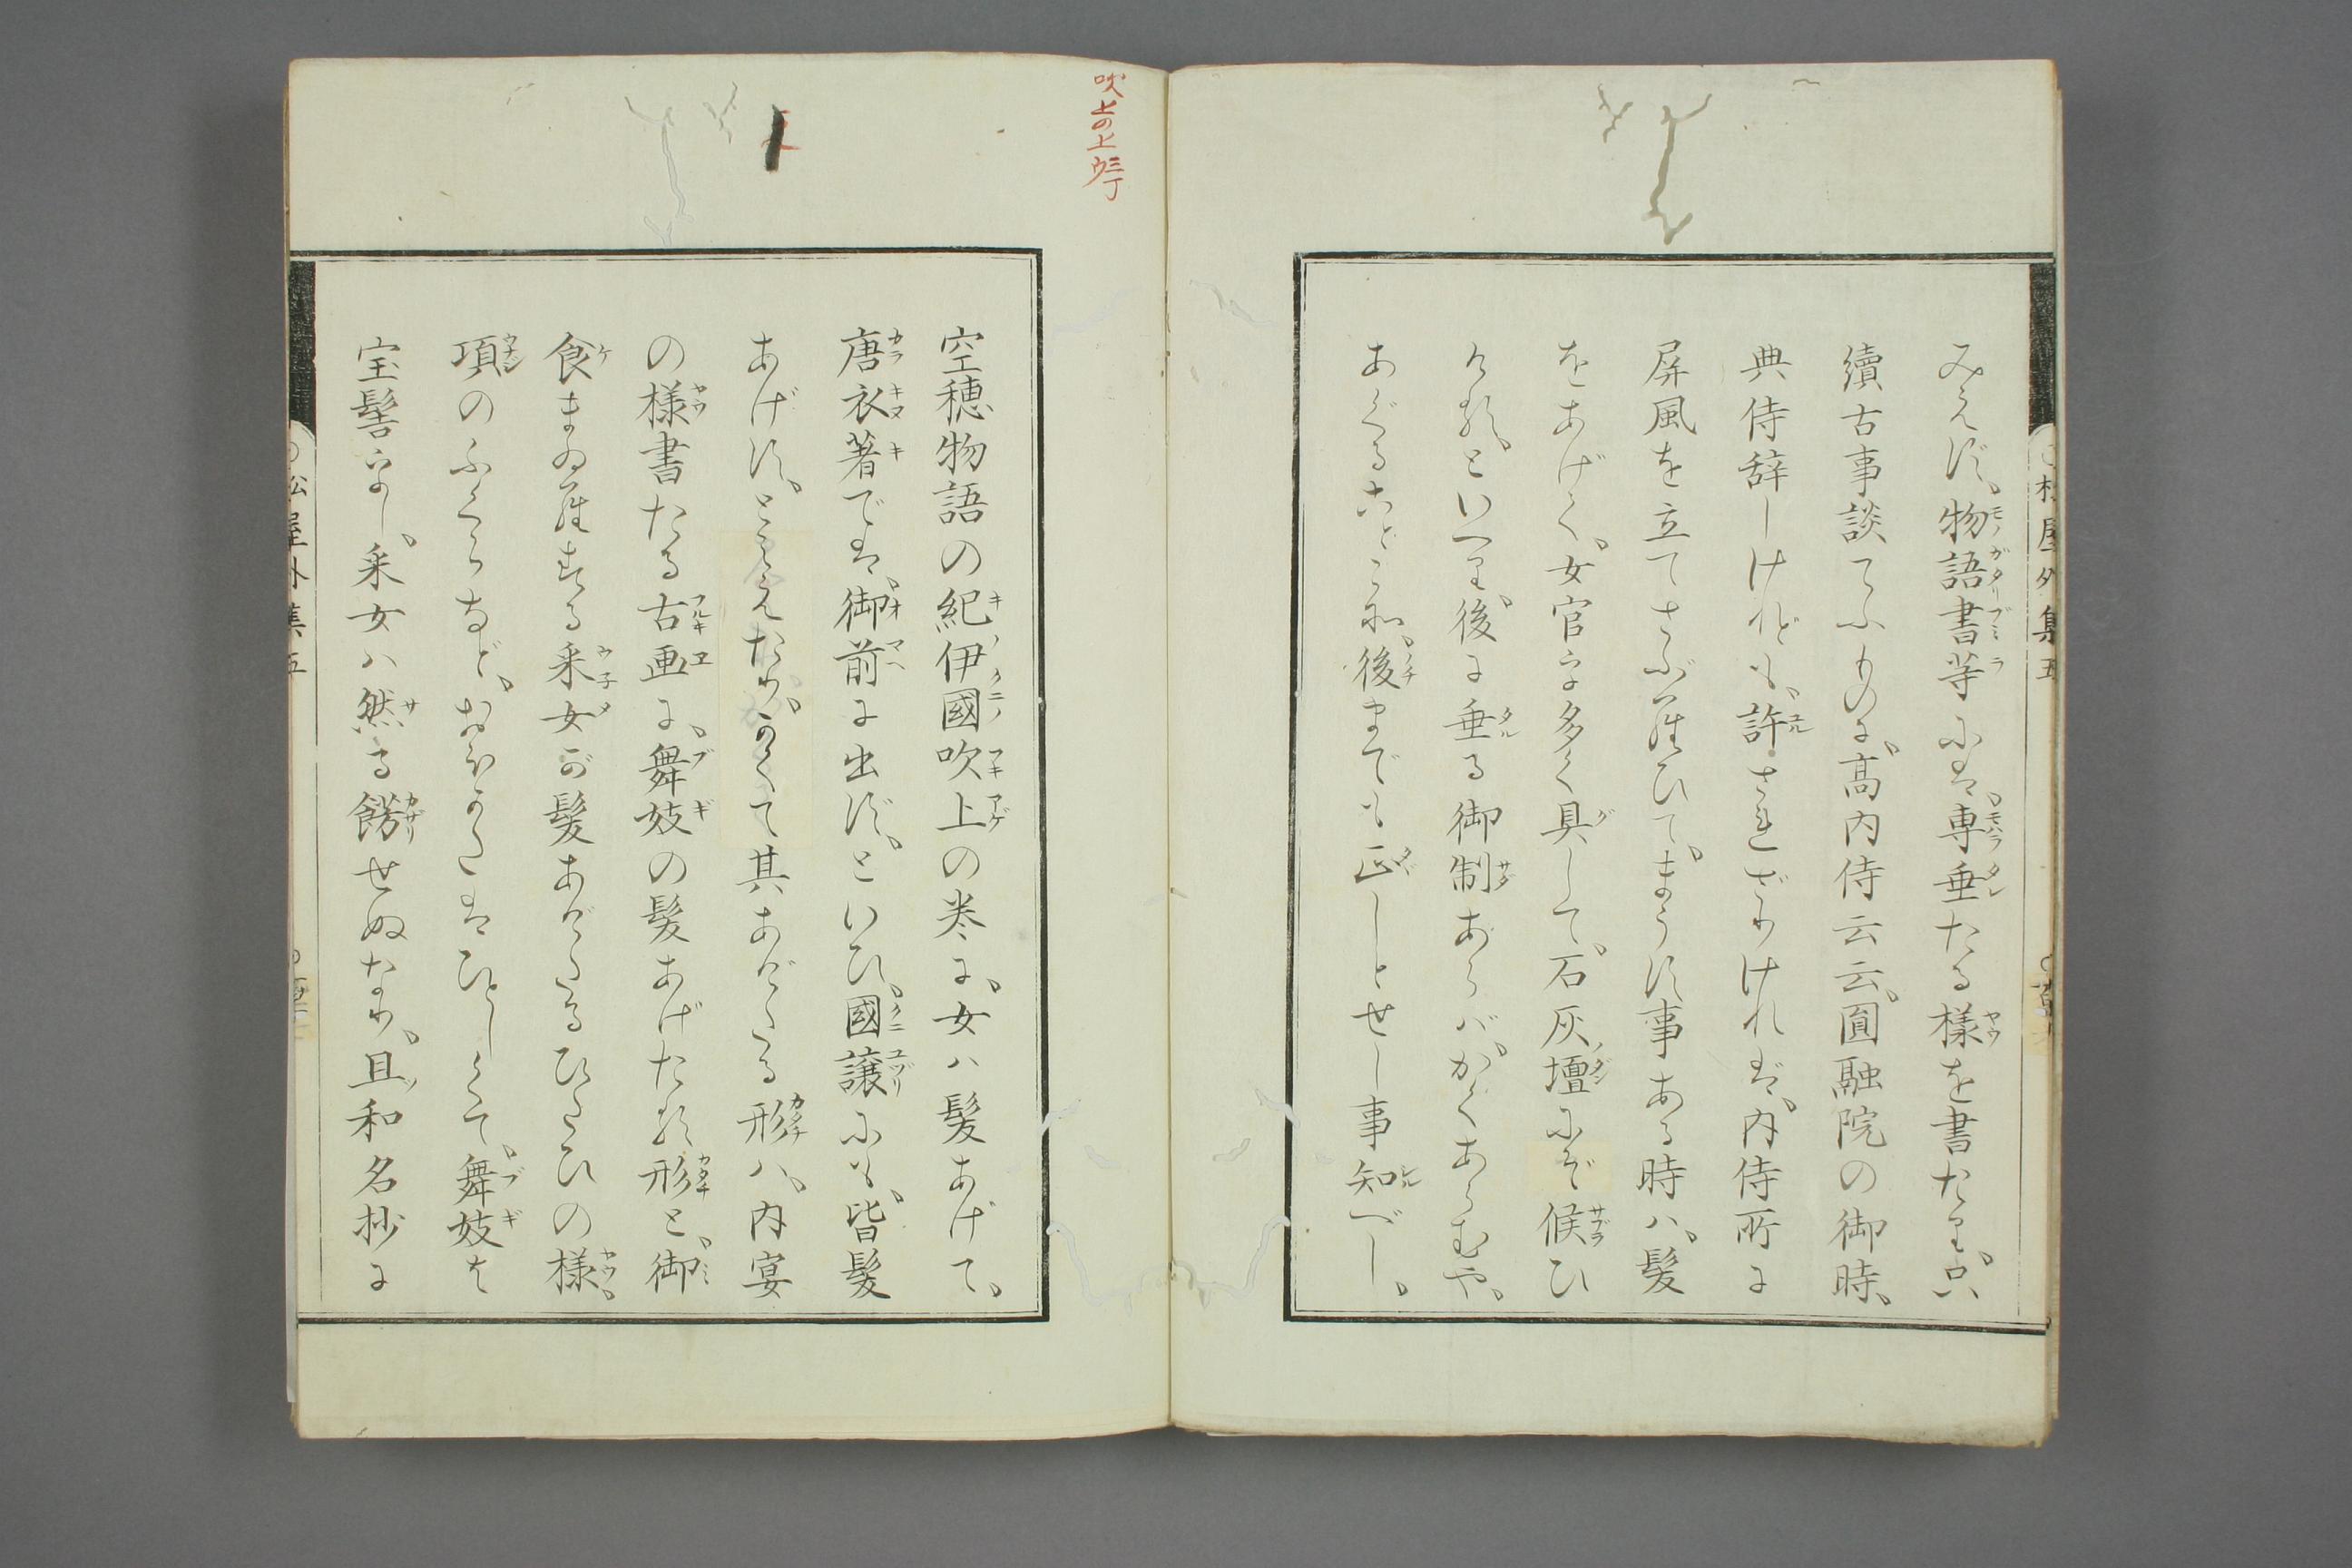 みえず、物語書等には、専垂たる様を書たり。只
續古事談てふものに、高内侍云云、圓融院の御時、
典侍辞しけれども、許されざりければ、内侍所に
屏風を立てさぶらひて、まうす事ある時ハ、髪
をあげて、女官を多く具して、石灰壇にぞ候ひ
ける、といへり、後に垂る御制あらバ、かくあらむや、
あぐることこれ、後までも正しとせし事知べし。
吹上の上
空穂物語の紀伊國吹上の巻に、女ハ髪あげて、
唐衣著では、御前に出ず、といひ、國譲にも、皆髪
あげず、とみえたり、かくて其あげたる形ハ、内宴
の様書たる古画に、舞妓の髪あげたる形と、御
食まゐらする采女が髪あげたるひたひの様、
項のふくらなど、おほかたはひとしくて、舞妓は
宝髻なし、采女ハ然る餝せぬなり、且和名抄に
松屋外集五
松屋外集五